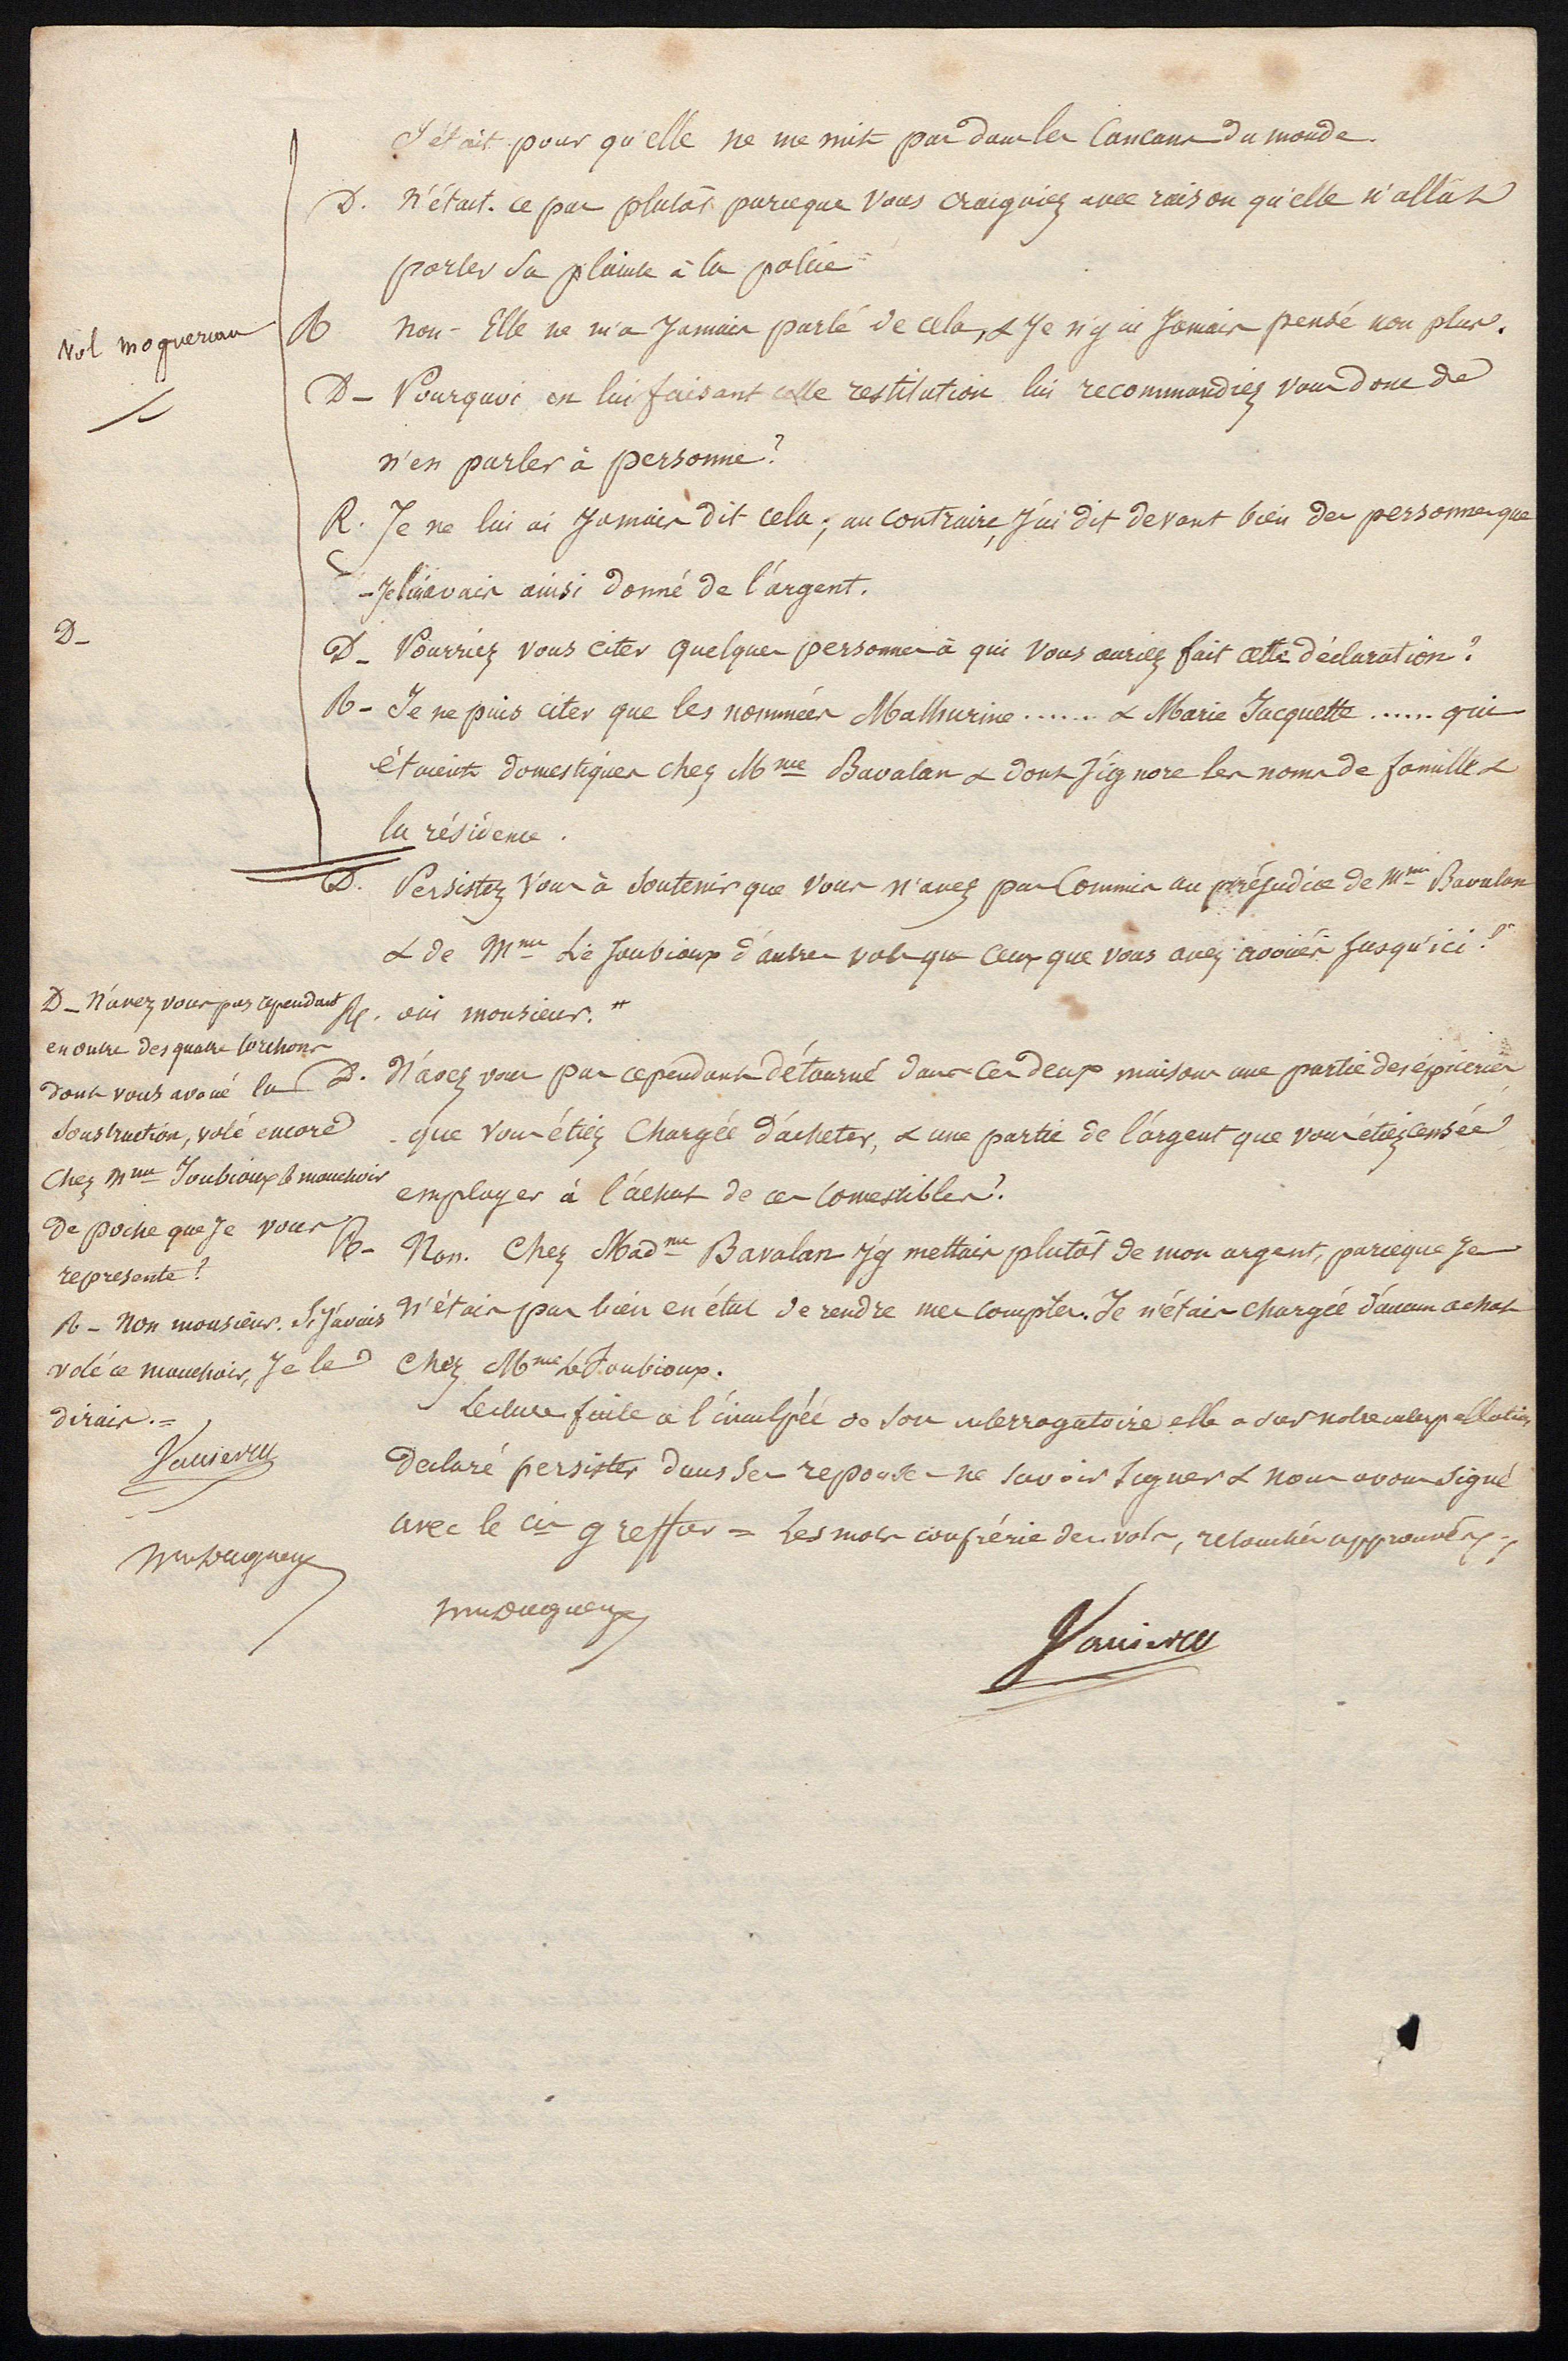 C'était pour qu'elle ne me mit pas dans les Cancans du monde.
D. N'était-ce pas plutôt parceque vous craigniez avec raison qu'elle n'allât
porter sa plainte à la police
vol moquereau
R Non - Elle ne m'a Jamais parlé de cela, & Je n'y ai Jamais pensé non plus.
D - Pourquoi en lui faisant cette restitution lui recommandiez vous donc de
n'en parler à personne?
R. Je ne lui ai Jamais dit cela; au contraire, J'ai dit devant bien des personnes que
- Je lui avais ainsi donné de l'argent.
D -
D - Pourriez vous citer quelques personnes à qui vous auriez fait cette déclaration?
R - Je ne puis citer que les nommées Mathurine ....... & Marie Jacquette ...... qui
étaient domestiques chez Mme Bavalan & dont J'ignore les noms de famille &
la résidence.
D. Persistez vous à soutenir que vous n'avez pas Commis au préjudice de Mme Bavalan
& de Mme Le Joubioux d'autres vols que ceux que vous avez avoués Jusqu'ici?
R. oui monsieur. #
D. N'avez vous pas cependant détourné dans ces deux maisons une partie des épiceries
que vous étiez Chargée d'acheter, & une partie de l'argent que vous étiez censée
employer à l'achat de ces comestibles?
R - Non. Chez Madme Bavalan J'y mettais plutôt de mon argent, parceque Je
n'étais pas bien en état de rendre mes comptes. Je n'étais chargée d'aucun achat
Chez Mme Le Joubioux.
Lecture faite à l'inculpée de son interrogatoire elle a sur notre interpellation
déclaré persister dans ses reponses ne savoir signer & nous avons signé
avec le cis greffier = Les mots confrérie des vols, retouchés approuvés
D - N'avez vous pas cependant
en outre des quatre torchons
dont vous avoué la
soustraction, volé encore
Chez Mme Joubioux le mouchoir
de poche que Je vous
represente?
R - Non monsieur. Si J'avais
volé ce mouchoir, Je le
dirais. =